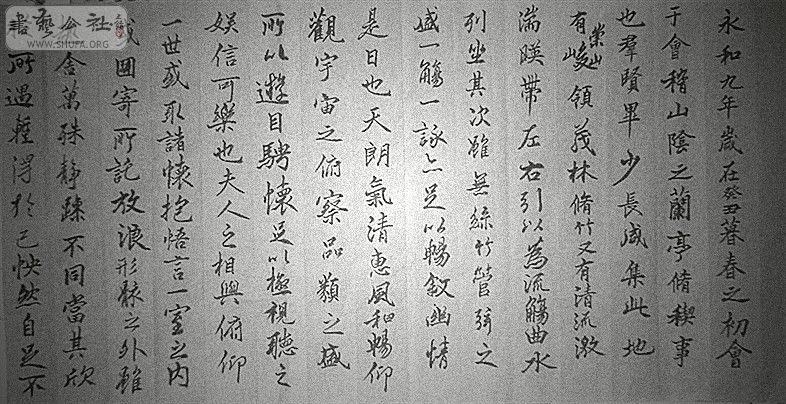 永和九年歲在癸丑暮春之初會
于會稽山陰之蘭亭脩稧事
也羣賢畢少長咸集此地
有崇山峻領茂林脩竹又有清流激
湍暎帶左右引以為流觴曲水
列坐其次雖無絲竹管弦之
盛一觴一詠亦足以暢敘幽情
是日也天朗氣清惠風和暢仰
觀宇宙之俯察品類之盛
所以遊目騁懷足以極視聽之
娛信可樂也夫人之相與俯仰
一世或取諸懷抱悟言一室之內
或因寄所託放浪形骸之外雖
舍萬殊靜躁不同當其欣
所遇輕得於己怏然自足不
書藝公社
WWW.SHUFA.ORG